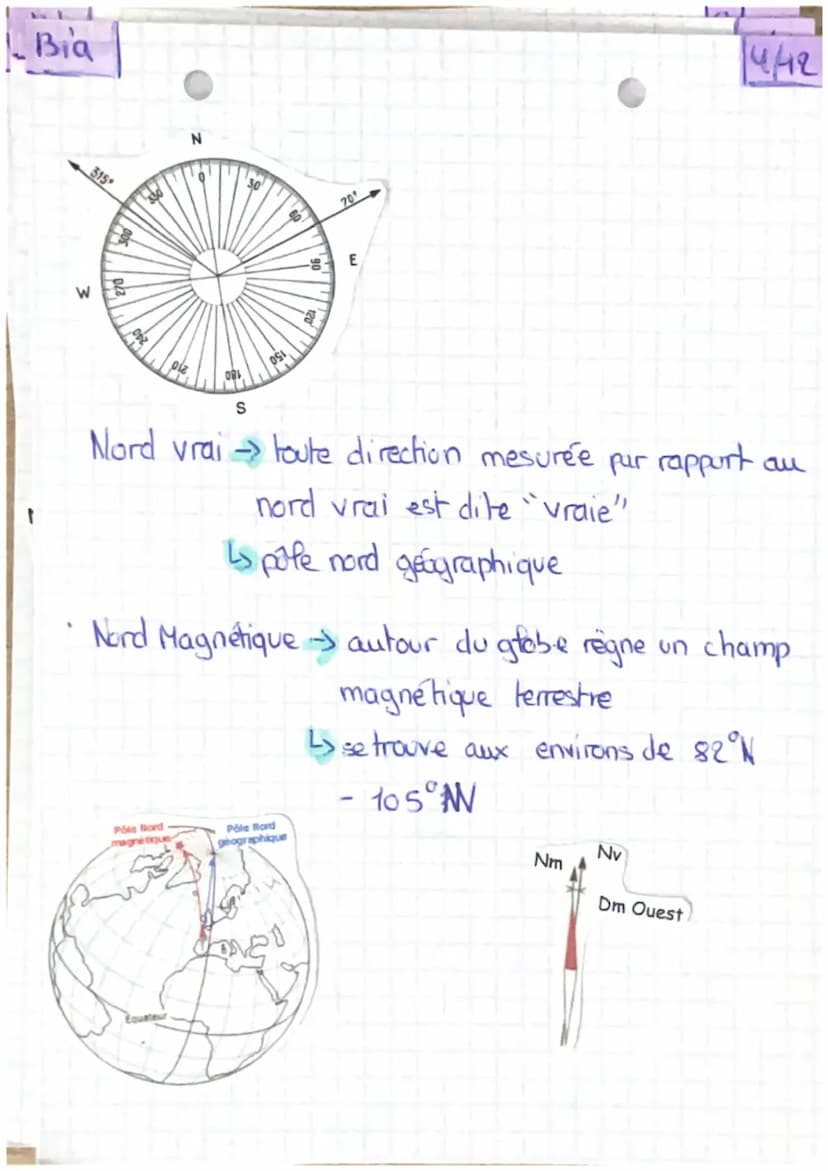 Bia
4/12
N
315°
70°
0
30
60
90
120
150
180
210
240
270
300
330
E
W
S
Nord vrai → toute direction mesurée par rapport au
nord vrai est dite "vraie"
↳ pôle nord géographique
Nord Magnétique → autour du globe règne un champ
magnétique terrestre
↳ se trouve aux environs de 82°N
- 105°W
Pôle Nord
magnétique
Pôle Nord
géographique
Equateur
Nm
Nv
Dm Ouest